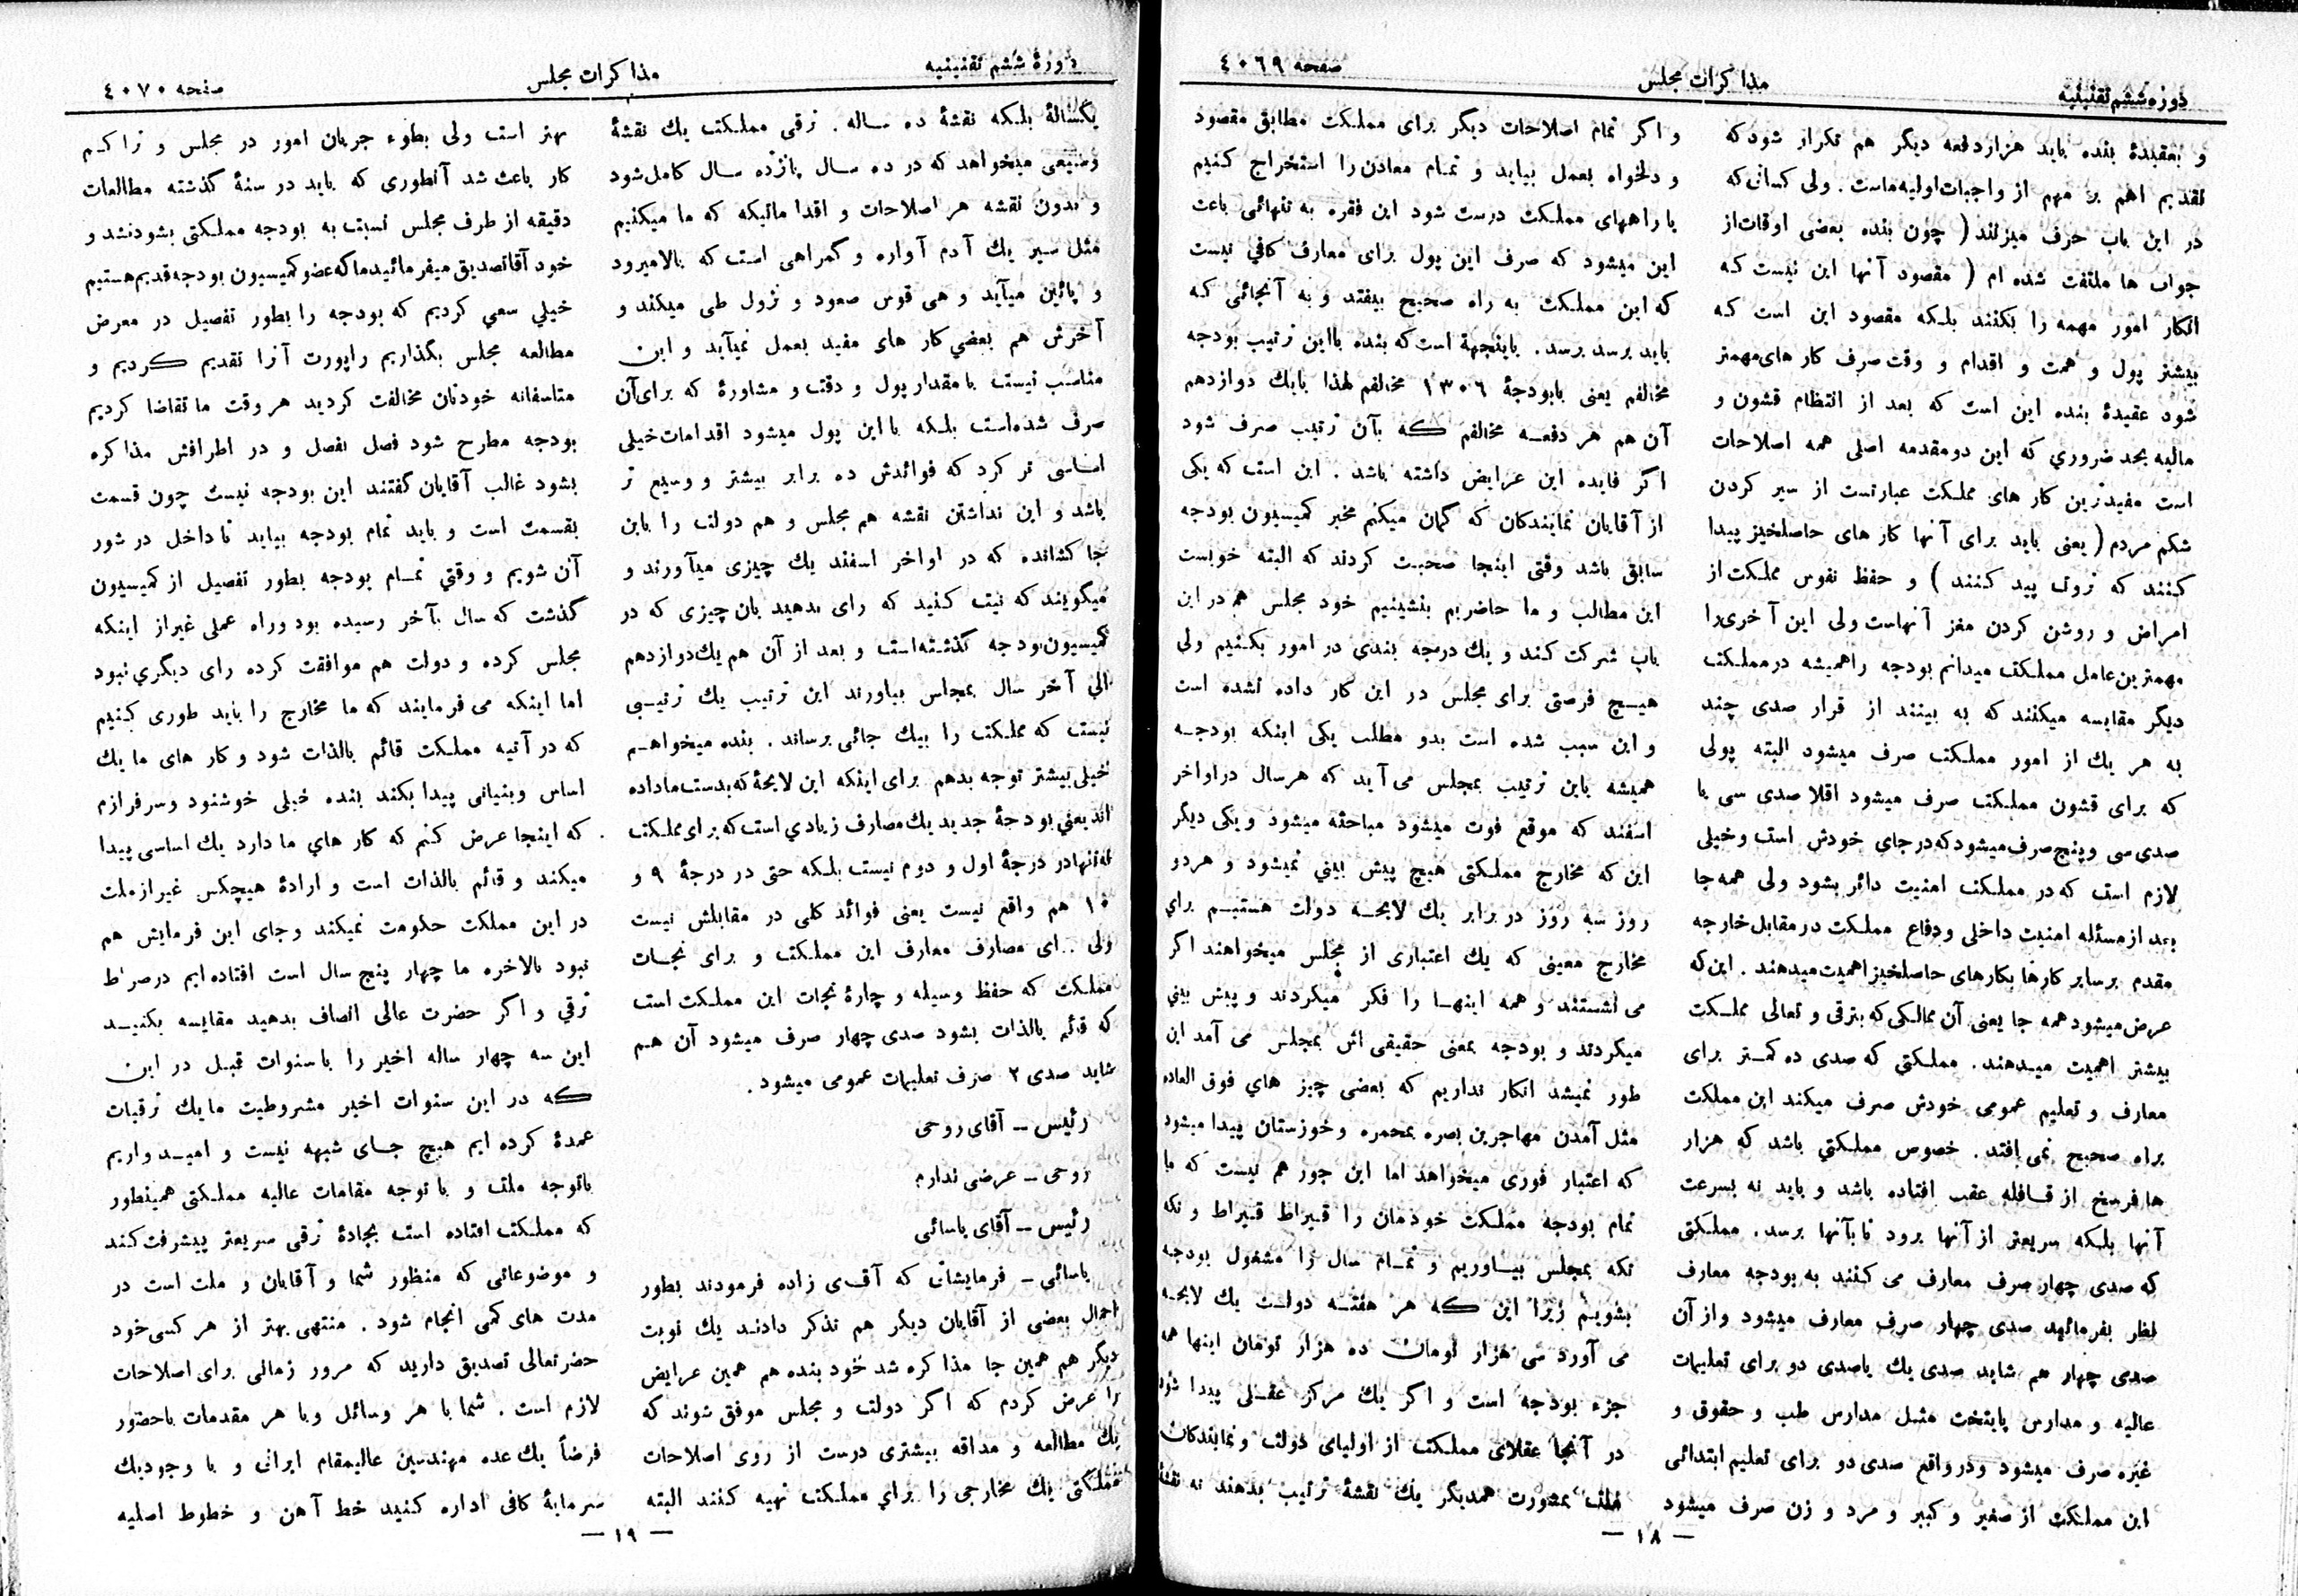 دوره ششم تقنینیه
مذاکرات مجلس
صفحه ٤٠٦٩
و بعقیدهٔ بنده باید هزار دفعه دیگر هم تکرار شود که
تقدیم اهم بر مهم از واجبات اولیه ماست . ولی کسانی که
در این باب حرف میزنند ( چون بنده بعضی اوقات از
جواب ها ملتفت شده ام ( مقصود آنها این نیست که
انکار امور مهمه را بکنند بلکه مقصود این است که
بیشتر پول و همت و اقدام و وقت صرف کار های مهمتر
شود عقیدهٔ بنده این است که بعد از انتظام قشون و
مالیه بحد ضروری که این دو مقدمه اصلی همه اصلاحات
است مفیدترین کار های مملکت عبارتست از سیر کردن
شکم مردم ( یعنی باید برای آنها کار های حاصلخیز پیدا
کنند که ثروت پید کنند ) و حفظ نفوس مملکت از
امراض و روشن کردن مغز آنهاست ولی این آخری را
مهمترین عامل مملکت میدانم بودجه را همیشه در مملکت
دیگر مقایسه میکنند که به بینند از قرار صدی چند
به هر یك از امور مملکت صرف میشود البته پولی
که برای قشون مملکت صرف میشود اقلا صدی سی یا
صدی سی و پنج صرف میشود که در جای خودش است و خیلی
لازم است که در مملکت امنیت دائر بشود ولی همه جا
بعد از مسئله امنیت داخلی و دفاع مملکت در مقابل خارجه
مقدم بر سایر کارها بکارهای حاصلخیز اهمیت میدهند . این که
عرض میشود همه جا یعنی آن ممالکی که بترقی و تعالی مملکت
بیشتر اهمیت میدهند . مملکتی که صدی ده کمتر برای
معارف و تعلیم عمومی خودش صرف میکند این مملکت
براه صحیح نمی افتد . خصوص مملکتی باشد که هزار
ها فرسخ از قافله عقب افتاده باشد و باید نه بسرعت
آنها بلکه سریعتر از آنها برود تا بآنها برسد . مملکتی
که صدی چهار صرف معارف می کنند به بودجه معارف
نظر بفرمائید صدی چهار صرف معارف میشود و از آن
صدی چهار هم شاید صدی یك یا صدی دو برای تعلیمات
عالیه و مدارس پایتخت مثل مدارس طب و حقوق و
غیره صرف میشود و در واقع صدی دو برای تعلیم ابتدائی
این مملکت از صغیر و کبیر و مرد و زن صرف میشود
و اگر تمام اصلاحات دیگر برای مملکت مطابق مقصود
و دلخواه بعمل بیاید و تمام معادن را استخراج کنیم
یا راههای مملکت درست شود این فقره به تنهائی باعث
این میشود که صرف این پول برای معارف کافی نیست
که این مملکت به راه صحیح بیفتد و به آنجائی که
باید برسد برسد . باینجهة است که بنده بااین ترتیب بودجه
مخالفم یعنی بابودجهٔ ١٣٠٦ مخالفم لهذا بایك دوازدهم
آن هم هر دفعه مخالفم که بآن ترتیب صرف شود
اگر فایده این عرایض داشته باشد . این است که یکی
از آقایان نمایندگان که گمان میکنم مخبر کمیسیون بودجه
سابق باشد وقتی اینجا صحبت کردند که البته خوبست
این مطالب و ما حاضریم بنشینیم خود مجلس هم در این
باب شرکت کند و یك درجه بندی در امور بکنیم ولی
هیچ فرصتی برای مجلس در این کار داده نشده است
و این سبب شده است بدو مطلب یکی اینکه بودجه
همیشه باین ترتیب بمجلس می آید که هر سال در اواخر
اسفند که موقع فوت میشود مباحثه میشود و یکی دیگر
این که مخارج مملکتی هیچ پیش بینی نمیشود و هر دو
روز سه روز در برابر یك لایحه دولت هستیم برای
مخارج معینی که یك اعتباری از مجلس میخواهند اگر
می نشستند و همه اینها را فکر میکردند و پیش بینی
میکردند و بودجه بمعنی حقیقی اش بمجلس می آمد این
طور نمیشد انکار نداریم که بعضی چیز های فوق العاده
مثل آمدن مهاجرین بصره بمحمره و خوزستان پیدا میشود
که اعتبار فوری میخواهد اما این جور هم نیست که ما
تمام بودجه مملکت خودمان را قیراط قیراط و تکه
تکه بمجلس بیاوریم و تمام سال را مشغول بودجه
بشویم زیرا این که هر هفته دولت یك لایحه
می آورد سی هزار تومان ده هزار تومان اینها همه
جزء بودجه است و اگر یك مرکز عقلی پیدا شود
در آنجا عقلای مملکت از اولیای دولت و نمایندگان
ملت بمشورت همدیگر یك نقشهٔ ترتیب بدهند نه نقشهٔ
— ١٨ —
دورهٔ ششم تقنینیه
مذاکرات مجلس
صفحه ٤٠٧٠
یکسالهٔ بلکه نقشهٔ ده ساله . ترقی مملکت یك نقشهٔ
وسیعی میخواهد که در ده سال پانزده سال کامل شود
و بدون نقشه هر اصلاحات و اقداماتیکه که ما میکنیم
مثل سیر یك آدم آواره و گمراهی است که بالا میرود
و پائین میآید و هی قوس صعود و نزول طی میکند و
آخرش هم بعضی کار های مفید بعمل نمیآید و این
مناسب نیست با مقدار پول و دقت و مشاورهٔ که برای آن
صرف شده است بلکه با این پول میشود اقدامات خیلی
اساسی تر کرد که فوائدش ده برابر بیشتر و وسیع تر
باشد و این نداشتن نقشه هم مجلس و هم دولت را باین
جا کشانده که در اواخر اسفند یك چیزی میآورند و
میگویند که نیت کنید که رای بدهید بان چیزی که در
کمیسیون بودجه گذشته است و بعد از آن هم یك دوازدهم
الی آخر سال بمجلس بیاورند این ترتیب یك ترتیبی
نیست که مملکت را بیك جائی برساند . بنده میخواهم
خیلی بیشتر توجه بدهم برای اینکه این لایحهٔ که بدست ما داده
اند یعنی بودجهٔ جدید یك مصارف زیادی است که برای مملکت
نه تنها در درجهٔ اول و دوم نیست بلکه حتی در درجهٔ ٩ و
١٠ هم واقع نیست یعنی فوائد کلی در مقابلش نیست
ولی ..ای مصارف معارف این مملکت و برای نجات
مملکت که حفظ وسیله و چارهٔ نجات این مملکت است
که قائم بالذات بشود صدی چهار صرف میشود آن هم
شاید صدی ٢ صرف تعلیمات عمومی میشود .
رئیس – آقای روحی
روحی – عرضی ندارم
رئیس – آقای یاسائی
یاسائی – فرمایشات که آقای زاده فرمودند بطور
اجمال بعضی از آقایان دیگر هم تذکر دادند یك نوبت
دیگر هم همین جا مذاکره شد خود بنده هم همین عرایض
را عرض کردم که اگر دولت و مجلس موفق شوند که
یك مطالعه و مداقه بیشتری درست از روی اصلاحات
مملکتی یك مخارجی را برای مملکت تهیه کنند البته
بهتر است ولی بطوء جریان امور در مجلس و تراکم
کار باعث شد آنطوری که باید در سنهٔ گذشته مطالعات
دقیقه از طرف مجلس نسبت به بودجه مملکتی بشود نشد و
خود آقا تصدیق میفرمائید ما که عضو کمیسیون بودجه قدیم هستیم
خیلی سعی کردیم که بودجه را بطور تفصیل در معرض
مطالعه مجلس بگذاریم راپورت آنرا تقدیم کردیم و
متاسفانه خودتان مخالفت کردید هر وقت ما تقاضا کردیم
بودجه مطرح شود فصل بفصل و در اطرافش مذاکره
بشود غالب آقایان گفتند این بودجه نیست چون قسمت
بقسمت است و باید تمام بودجه بیاید تا داخل در شور
آن شویم و وقتی تمام بودجه بطور تفصیل از کمیسیون
گذشت که سال بآخر رسیده بود و راه عملی غیر از اینکه
مجلس کرده و دولت هم موافقت کرده رای دیگری نبود
اما اینکه می فرمایند که ما مخارج را باید طوری کنیم
که در آتیه مملکت قائم بالذات شود و کار های ما یك
اساس و بنیانی پیدا بکند بنده خیلی خوشنود و سرفرازم
که اینجا عرض کنم که کار های ما دارد یك اساسی پیدا
میکند و قائم بالذات است و ارادهٔ هیچکس غیر از ملت
در این مملکت حکومت نمیکند و جای این فرمایش هم
نبود بالاخره ما چهار پنج سال است افتاده ایم در صراط
ترقی و اگر حضرت عالی انصاف بدهید مقایسه بکنید
این سه چهار ساله اخیر را با سنوات قبل در این
که در این سنوات اخیر مشروطیت ما یك ترقیات
عمدهٔ کرده ایم هیچ جای شبهه نیست و امیدواریم
باتوجه ملت و با توجه مقامات عالیه مملکتی همینطور
که مملکت افتاده است بجادهٔ ترقی سریعتر پیشرفت کند
و موضوعاتی که منظور شما و آقایان و ملت است در
مدت های کمی انجام شود . منتهی بهتر از هر کسی خود
حضرتعالی تصدیق دارید که مرور زمانی برای اصلاحات
لازم است . شما با هر وسائل و با هر مقدمات باحضور
فرضاً یك عده مهندسین عالیمقام ایرانی و با وجود یك
سرمایهٔ کافی اداره کنید خط آهن و خطوط اصلیه
— ١٩ —